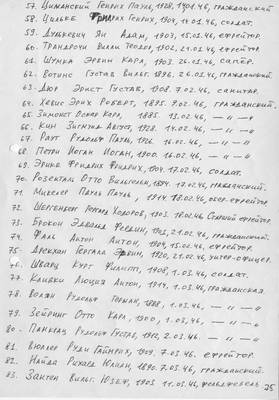 57. Циманский Генрих Пауль, 1928, 14.01.46, гражданский
58. Цильке Фридрих Генрих, 1904, 14.01.46, солдат.
59. Дулькевич Ян Адам, 1903, 15.02.46, ефрейтор.
60. Трандорфи Вилли Теодор, 1902, 21.02.46 ефрейтор
61. Шункa Эрвин Карл, 1903. 26.01.46, сапёр.
62. Вотинс Густав Вильг. 1896, 26.02.46, гражданский.
63. Дюр Эрнст Густав, 1908, 7.02.46, санитар.
64. Хевис Эрих Роберт, 1895. 9.02.46, гражданский.
65. Зимонст Оскар Карл, 1885. 13.02.46, — „ —
66. Кин Зигмунд Август, 1928. 14.02.46, — „ —
67. Раут Рудольф Пауль, 1926. 16.02.46, — „ —
68. Петри Иоган Иоган, 1900. 16.02.46, — „ —
69. Эрике Фридрих Фридрих, 1904. 17.02.46, солдат.
70. Розенталь Отто Вильгельм, 1894. 17.02.46, гражданский.
71. Михелер Пауль Пауль, 1914. 18.02.46, обер. ефрейтор
72. Герхард Теодоров, 1903. 18.02.46. Старший ефрейтор
73. Брокон Эдвальд 1925, 21.02.46, гражданский
74. Фаль Антон Антон, 1904, 15.02.46, ефрейтор.
75. Гергард Эрвин, 1920, 21.02.46, унтер-офицер.
76. Шварц Курт Филипп, 1908, 1.03.46, солдат.
77. Люция Антон, 1914, 1.03.46, гражданская.
78. Волян Рудольф Герман, 1888, 1.03.46, — „ —
79. Зейринг Отто Карл, 1900, 1.03.46, — „ —
80. Рудольф Густав, 1912, 2.03.46. — „ —
81. Вюллер Руди Гайнрих, 1909, 7.03.46. ефрейтор.
82. Найда Рихард Юлиан, 1890. 7.03.46, гражданский.
83. Зактен Вильг. Юзеф, 1903. 11.03.46, фельдфебель
25